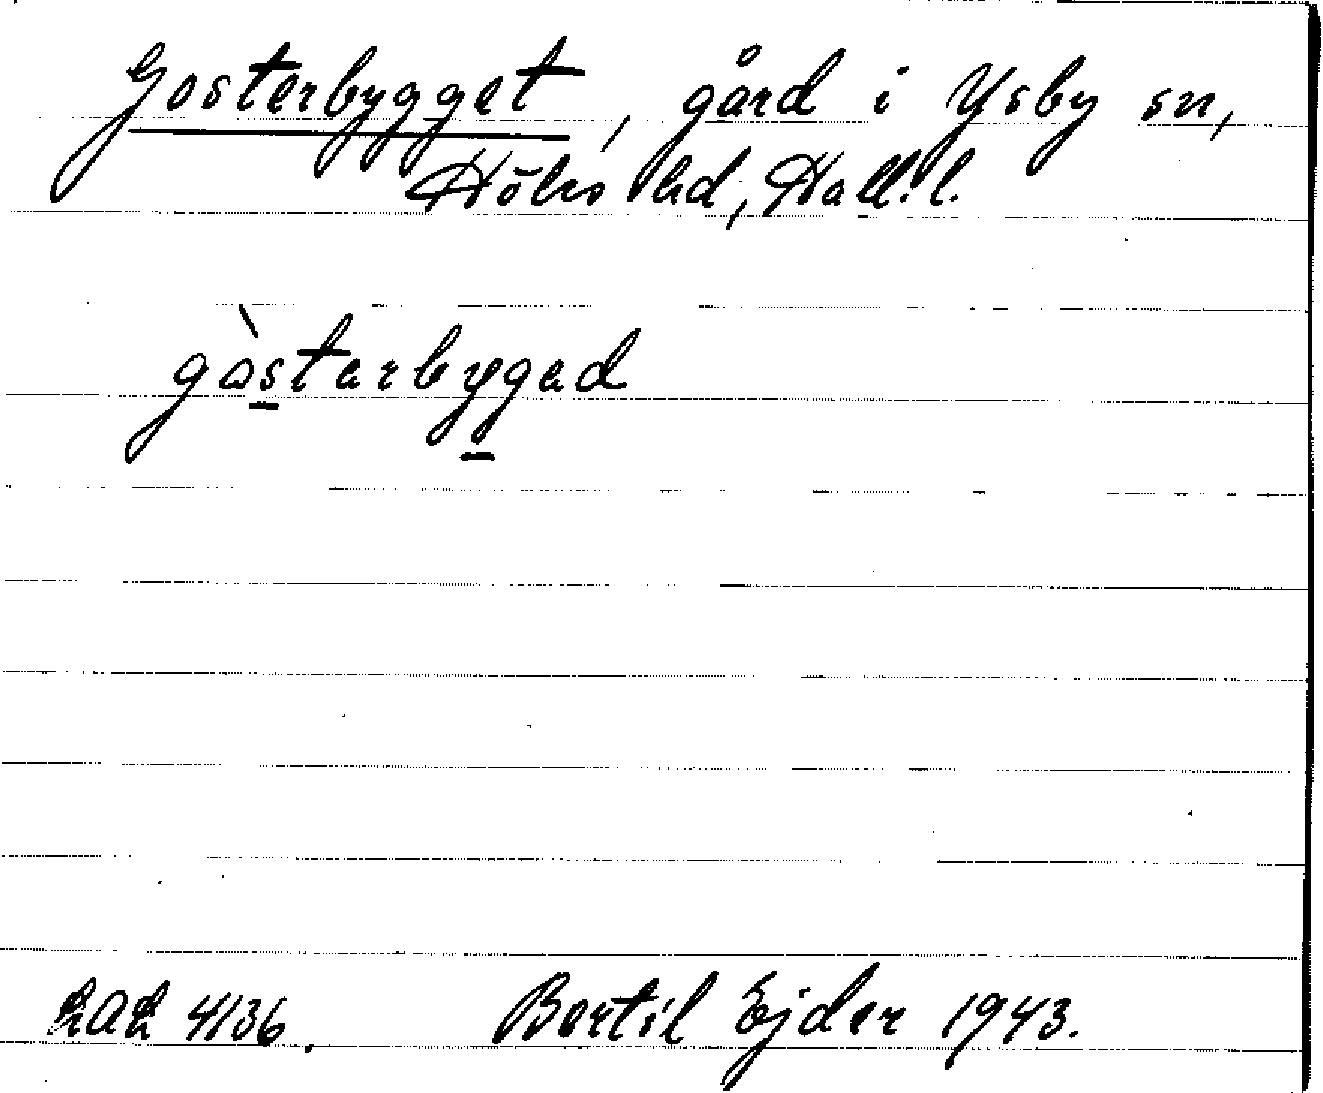 Gosterbygget, gård i Ysby sn,
Höks hd, Hall. l.
gòsterbyged
LAL 4136.
Bertil Ejder 1943.